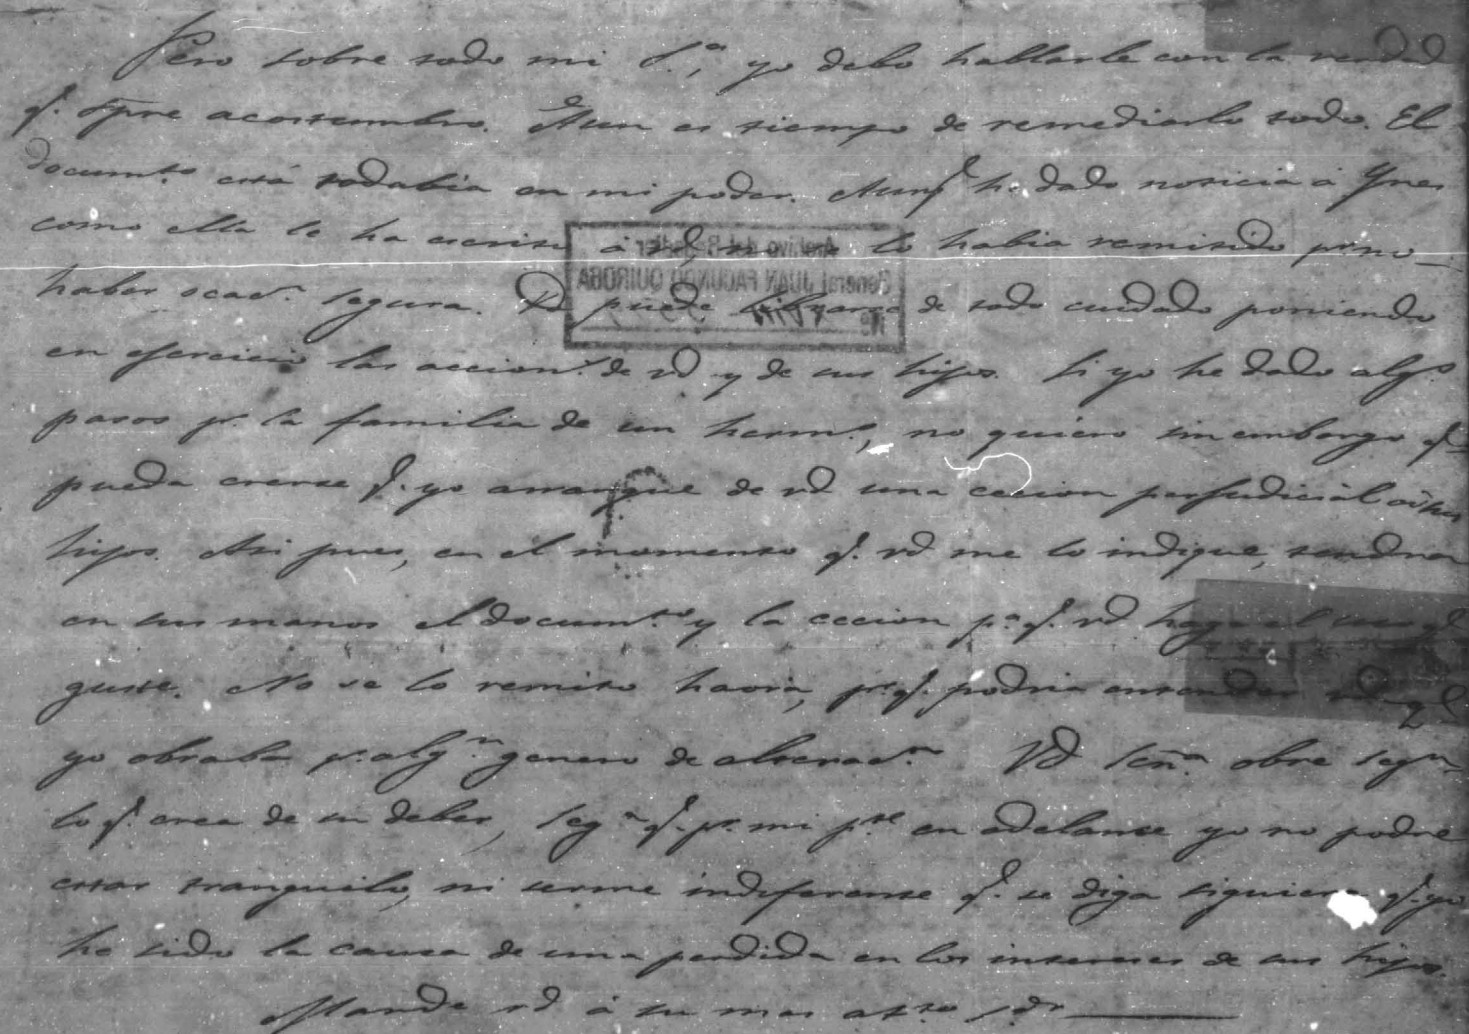 Pero sobre todo mi S.ª, yo debo hablarle con la verdad
q.e sp̃re acostumbro. Aun es tiempo de remediarlo todo. El
docum.to está todabia en mi poder. Aunq.e he dado noticia á Ynes
como ella le ha escrito á lo habia remitido pr no
haber ocac.n segura. Vd puede librarse de todo cuidado poniendo
en ejercicio las accion.s de vd y de sus hijos. Si yo he dado alg.s
pasos p.r la familia de un herm.o, no quiero sin embargo q.e
pueda creerse q.e yo arranque de vd una cecion perjudicial á sus
hijos. Asi pues, en el momento q.e vd me lo indique, tendra
en sus manos el docum.to y la cecion p.a q.e vd haga el uso q.e
guste. No se lo remito haora, pr.q.e podria entender vd q.e
yo obraba p.r alg.n genero de alterac.n Vd Señ.a obre seg.n
lo q.e crea de su deber, seg.n q.e p.r mi p.te en adelante yo no podré
estar tranquilo, ni serme indiferente q.e se diga siquiera q.e yo
he sido la causa de una perdida en los intereses de sus hijos.
Mande vd á su mas at.to s.dr
Archivo del Brigadier
General JUAN FACUNDO QUIROGA
Nº